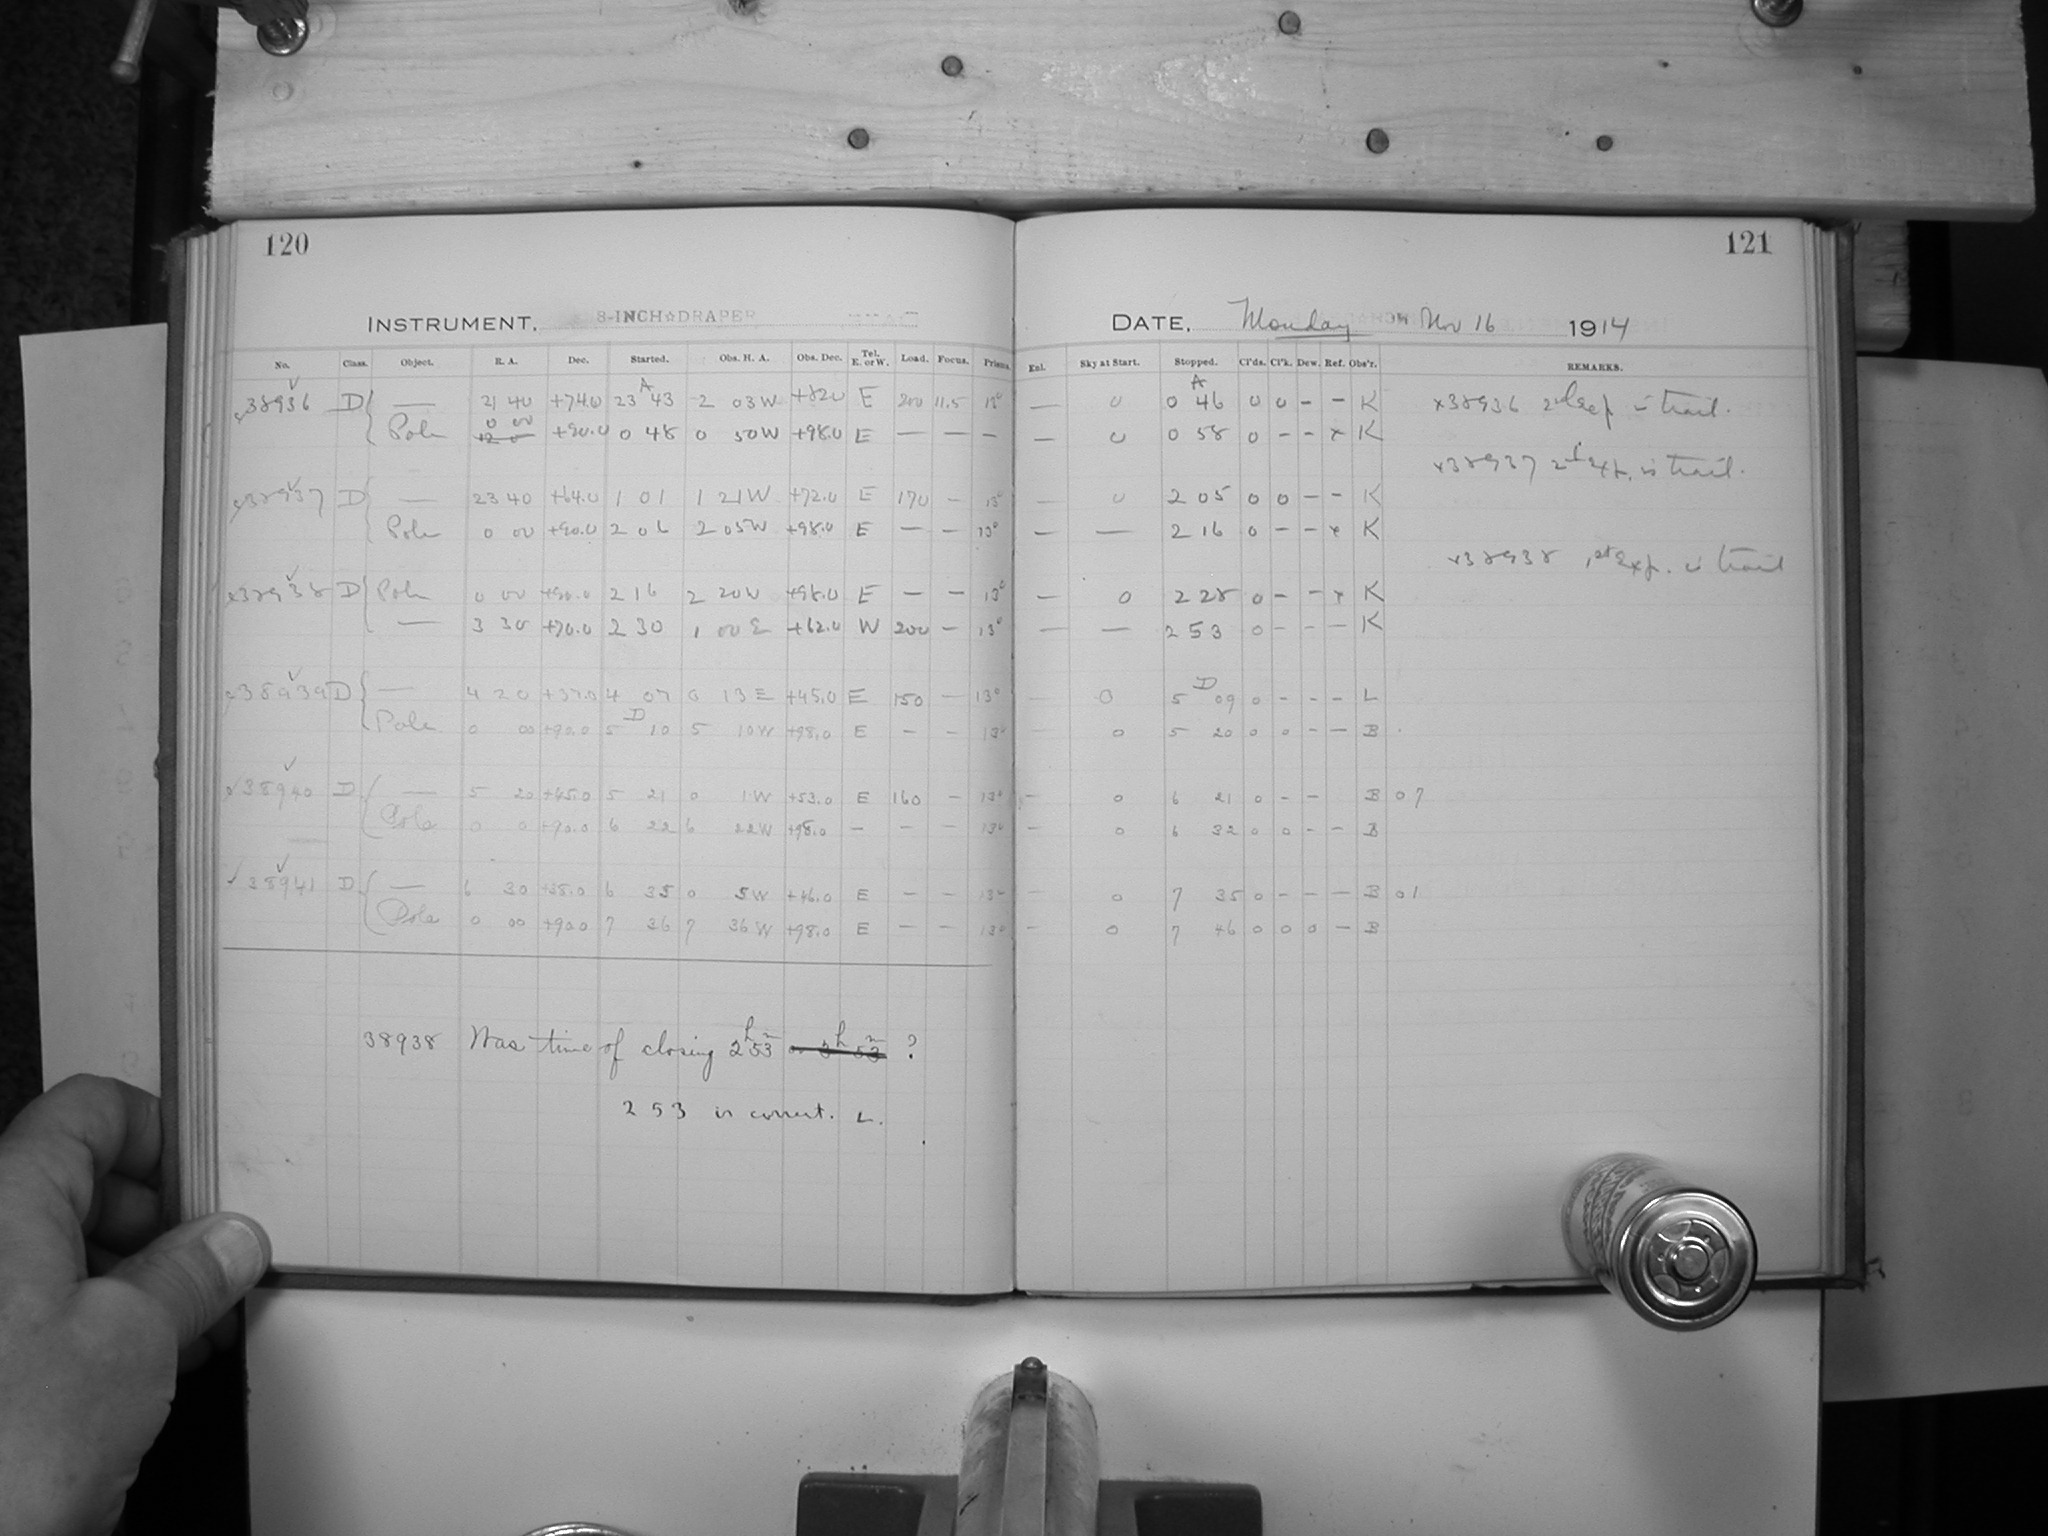 120
121
INSTRUMENT, 8-INCH☆DRAPER
DATE, Monday Nov 16 1914
No. Class. Object. R. A. Dec. Started. Obs. H. A. Obs. Dec. Tel. E. or W. Load. Focus. Prisms.
Exl. Sky at Start. Stopped. Cl'ds. Cl'k. Dew. Ref. Obs'r. REMARKS.
x38936 D — 21 40 +74.0 23 A 43 2 03W +82.0 E 200 11.5 13° — 0 0 A 46 0 0 - - K x38936 2nd exp is trail.
Pole 0 00 +90.0 0 48 0 50W +98.0 E — — — — 0 0 58 0 - - x K
x38937 2d exp. is trail.
x38937 D — 23 40 +64.0 1 01 1 21W +72.0 E 170 - 13° — 0 2 05 0 0 - - K
Pole 0 00 +90.0 2 06 2 05W +98.0 E — - 13° — — 2 16 0 - - x K
x38938 1st exp. is trail
x38938 D Pole 0 00 +90.0 2 16 2 20W +98.0 E — — 13° — 0 2 28 0 - - x K
— 3 30 +70.0 2 30 1 00 E +62.0 W 200 - 13° — — 2 53 0 - - - K
x38939 D — 4 20 +37.0 4 07 0 13 E +45.0 E 150 - 13° — 0 5 D 09 0 - - - L
Pole 0 00 +90.0 5 D 10 5 10W +98.0 E — — 13° — 0 5 20 0 0 - - B
x38940 D — 5 20 +45.0 5 21 0 1W +53.0 E 160 - 13° — 0 6 21 0 - - B 07
Pole 0 0 +90.0 6 22 6 22W +98.0 — — — 13° — 0 6 32 0 0 - - B
38941 D — 6 30 +38.0 6 35 0 5W +46.0 E — — 13° — 0 7 35 0 - - - B 01
Pole 0 00 +90.0 7 36 7 36W +98.0 E — — 13° — 0 7 46 0 0 0 - B
38938 Was time of closing 2h 53m or 3h 53m ?
2 53 is correct. L.